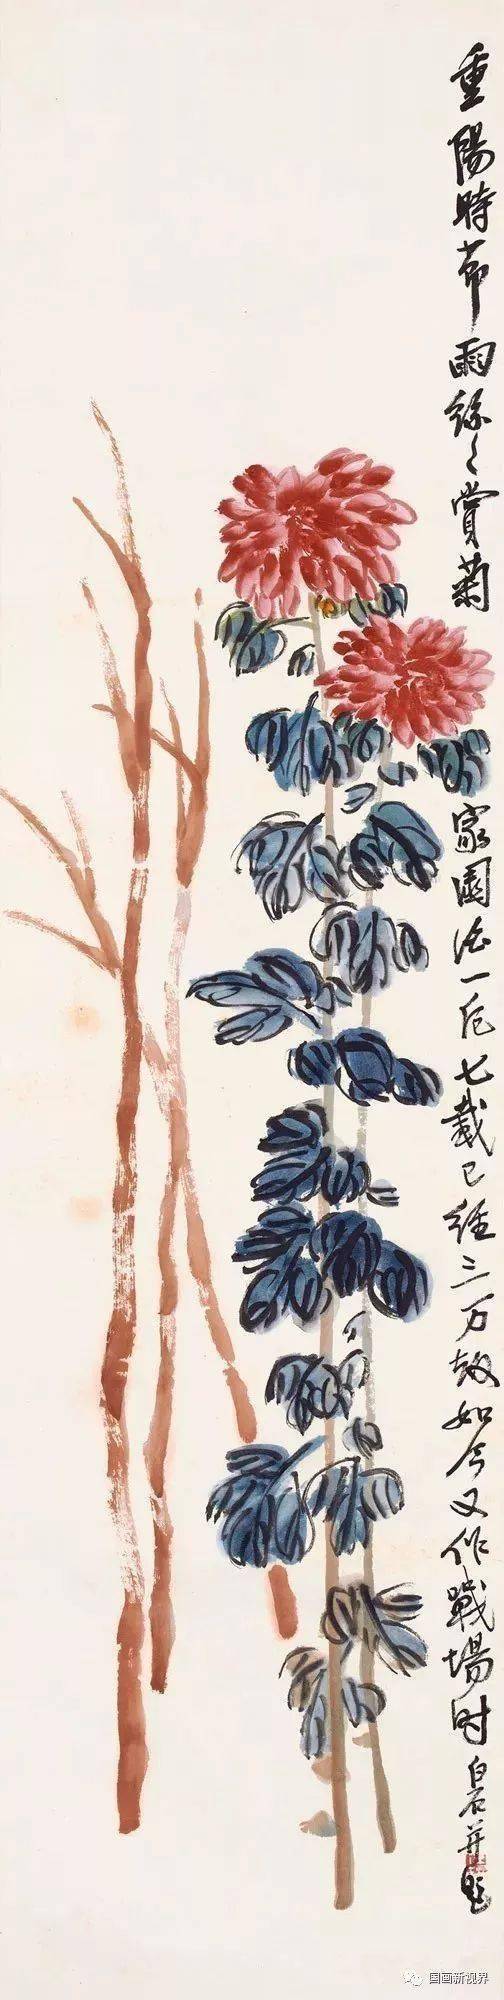 重陽時節雨絲〻賞菊家園酒一卮七載已經三万 如今又作戰場时白石并題
国画新视界